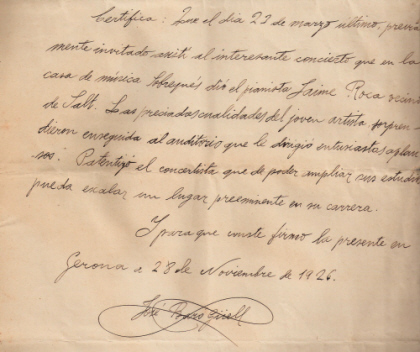 Certifica: Que el dia 22 de marzo último, previa
mente invitado, asistí al interesante concierto que en la
casa de música Sobrequés dió el pianista Jaime Roca vecino
de Salt. Las preciadas cualidades del joven artista sorpren
dieron enseguida al auditorio que le dirigió entusiastas aplau
sos. Patentizó el concertista que de poder ampliar sus estudios
pueda escalar un lugar preeminente en su carrera.
Y para que conste firmo la presente en
Gerona a 28 de Noviembre de 1926.
José